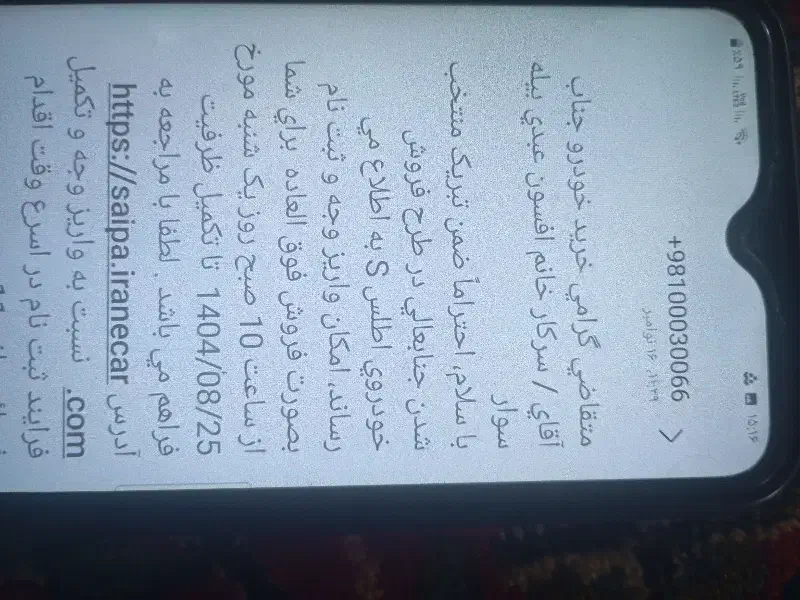 ۱۵:۱۶
٪۵۹
+98100030066
۱۶ نوامبر،
متقاضي گرامي خريد خودرو جناب
آقاي / سركار خانم افسون عبدي بيله
سوار
با سلام، احتراماً ضمن تبريک منتخب
شدن جنابعالي در طرح فروش
خودروي اطلس S به اطلاع مي
رساند، امکان واريز وجه و ثبت نام
بصورت فروش فوق العاده براي شما
از ساعت 10 صبح روز یک شنبه مورخ
1404/08/25 تا تکميل ظرفيت
فراهم مي باشد . لطفا با مراجعه به
آدرس https://saipa.iranecar
.com نسبت به واريز وجه و تکميل
فرايند ثبت نام در اسرع وقت اقدام